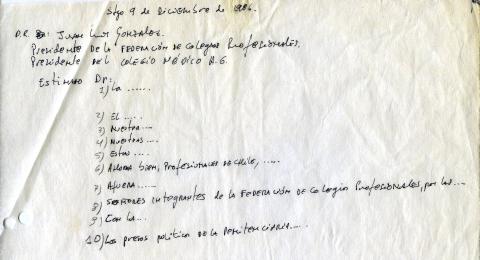 Stgo 9 de Diciembre de 1986.
D.R. : Juan Luis Gonzalez.
Presidente de la Federación de Colegios Profesionales.
Presidente del Colegio Médico A.G.
Estimado Dr.,
1) La ......
2) El .....
3) Nuestra....
4) Nuestras ....
5) Estas ....
6) Ahora bien, Profesionales de Chile, .....
7) Afuera......
8) Señores integrantes de la Federación de Colegios Profesionales, por las ....
9) Con la....
10) Los presos políticos de la Penitenciaria.....